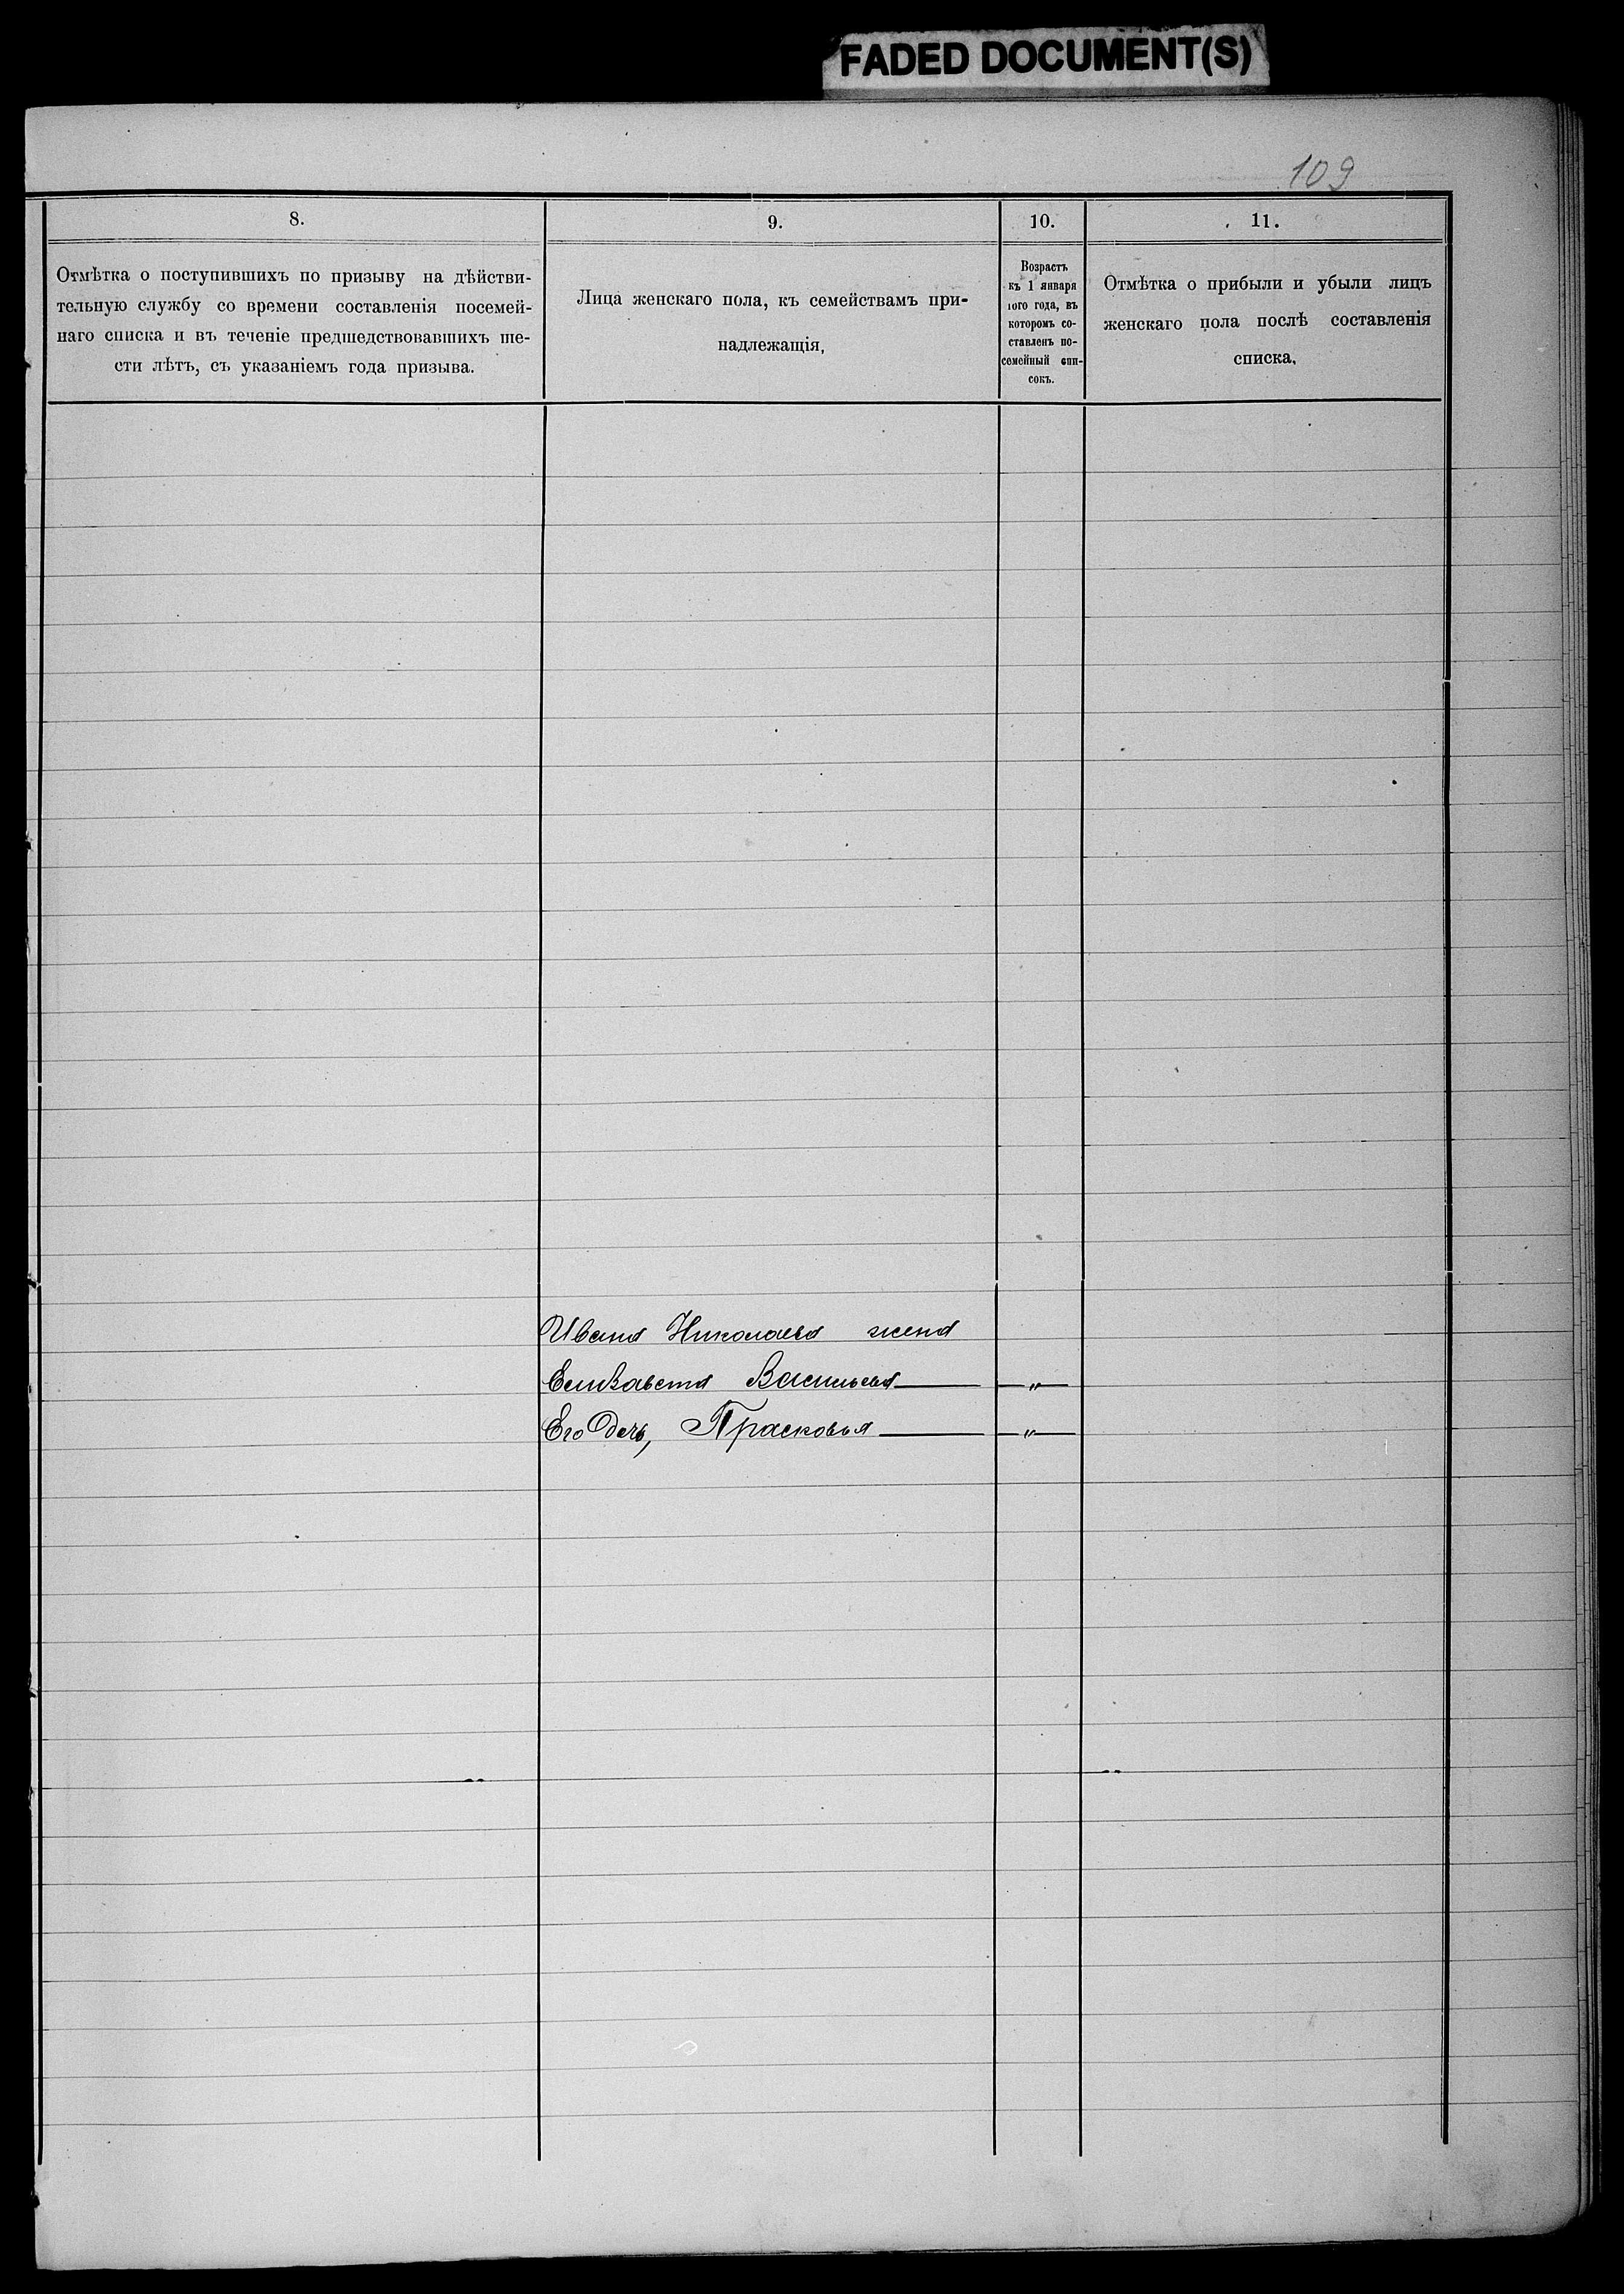 FADED DOCUMENT(S)
109
8.
Отмѣтка о поступившихъ по призыву на дѣйстви-
тельную службу со времени составленія посемей-
наго списка и въ теченіе предшедствовавшихъ ше-
сти лѣтъ, съ указаніемъ года призыва.
9.
Лица женскаго пола, къ семействамъ при-
надлежащія,
10.
Возрастъ
къ 1 января
1ого года, въ
которомъ со-
ставленъ по-
семейный спи-
сокъ.
11.
Отмѣтка о прибыли и убыли лицъ
женскаго пола послѣ составленія
списка.
Ивана Николаева жена
Елизавета Васильева — „ —
Его Дочь, Прасковья — „ —